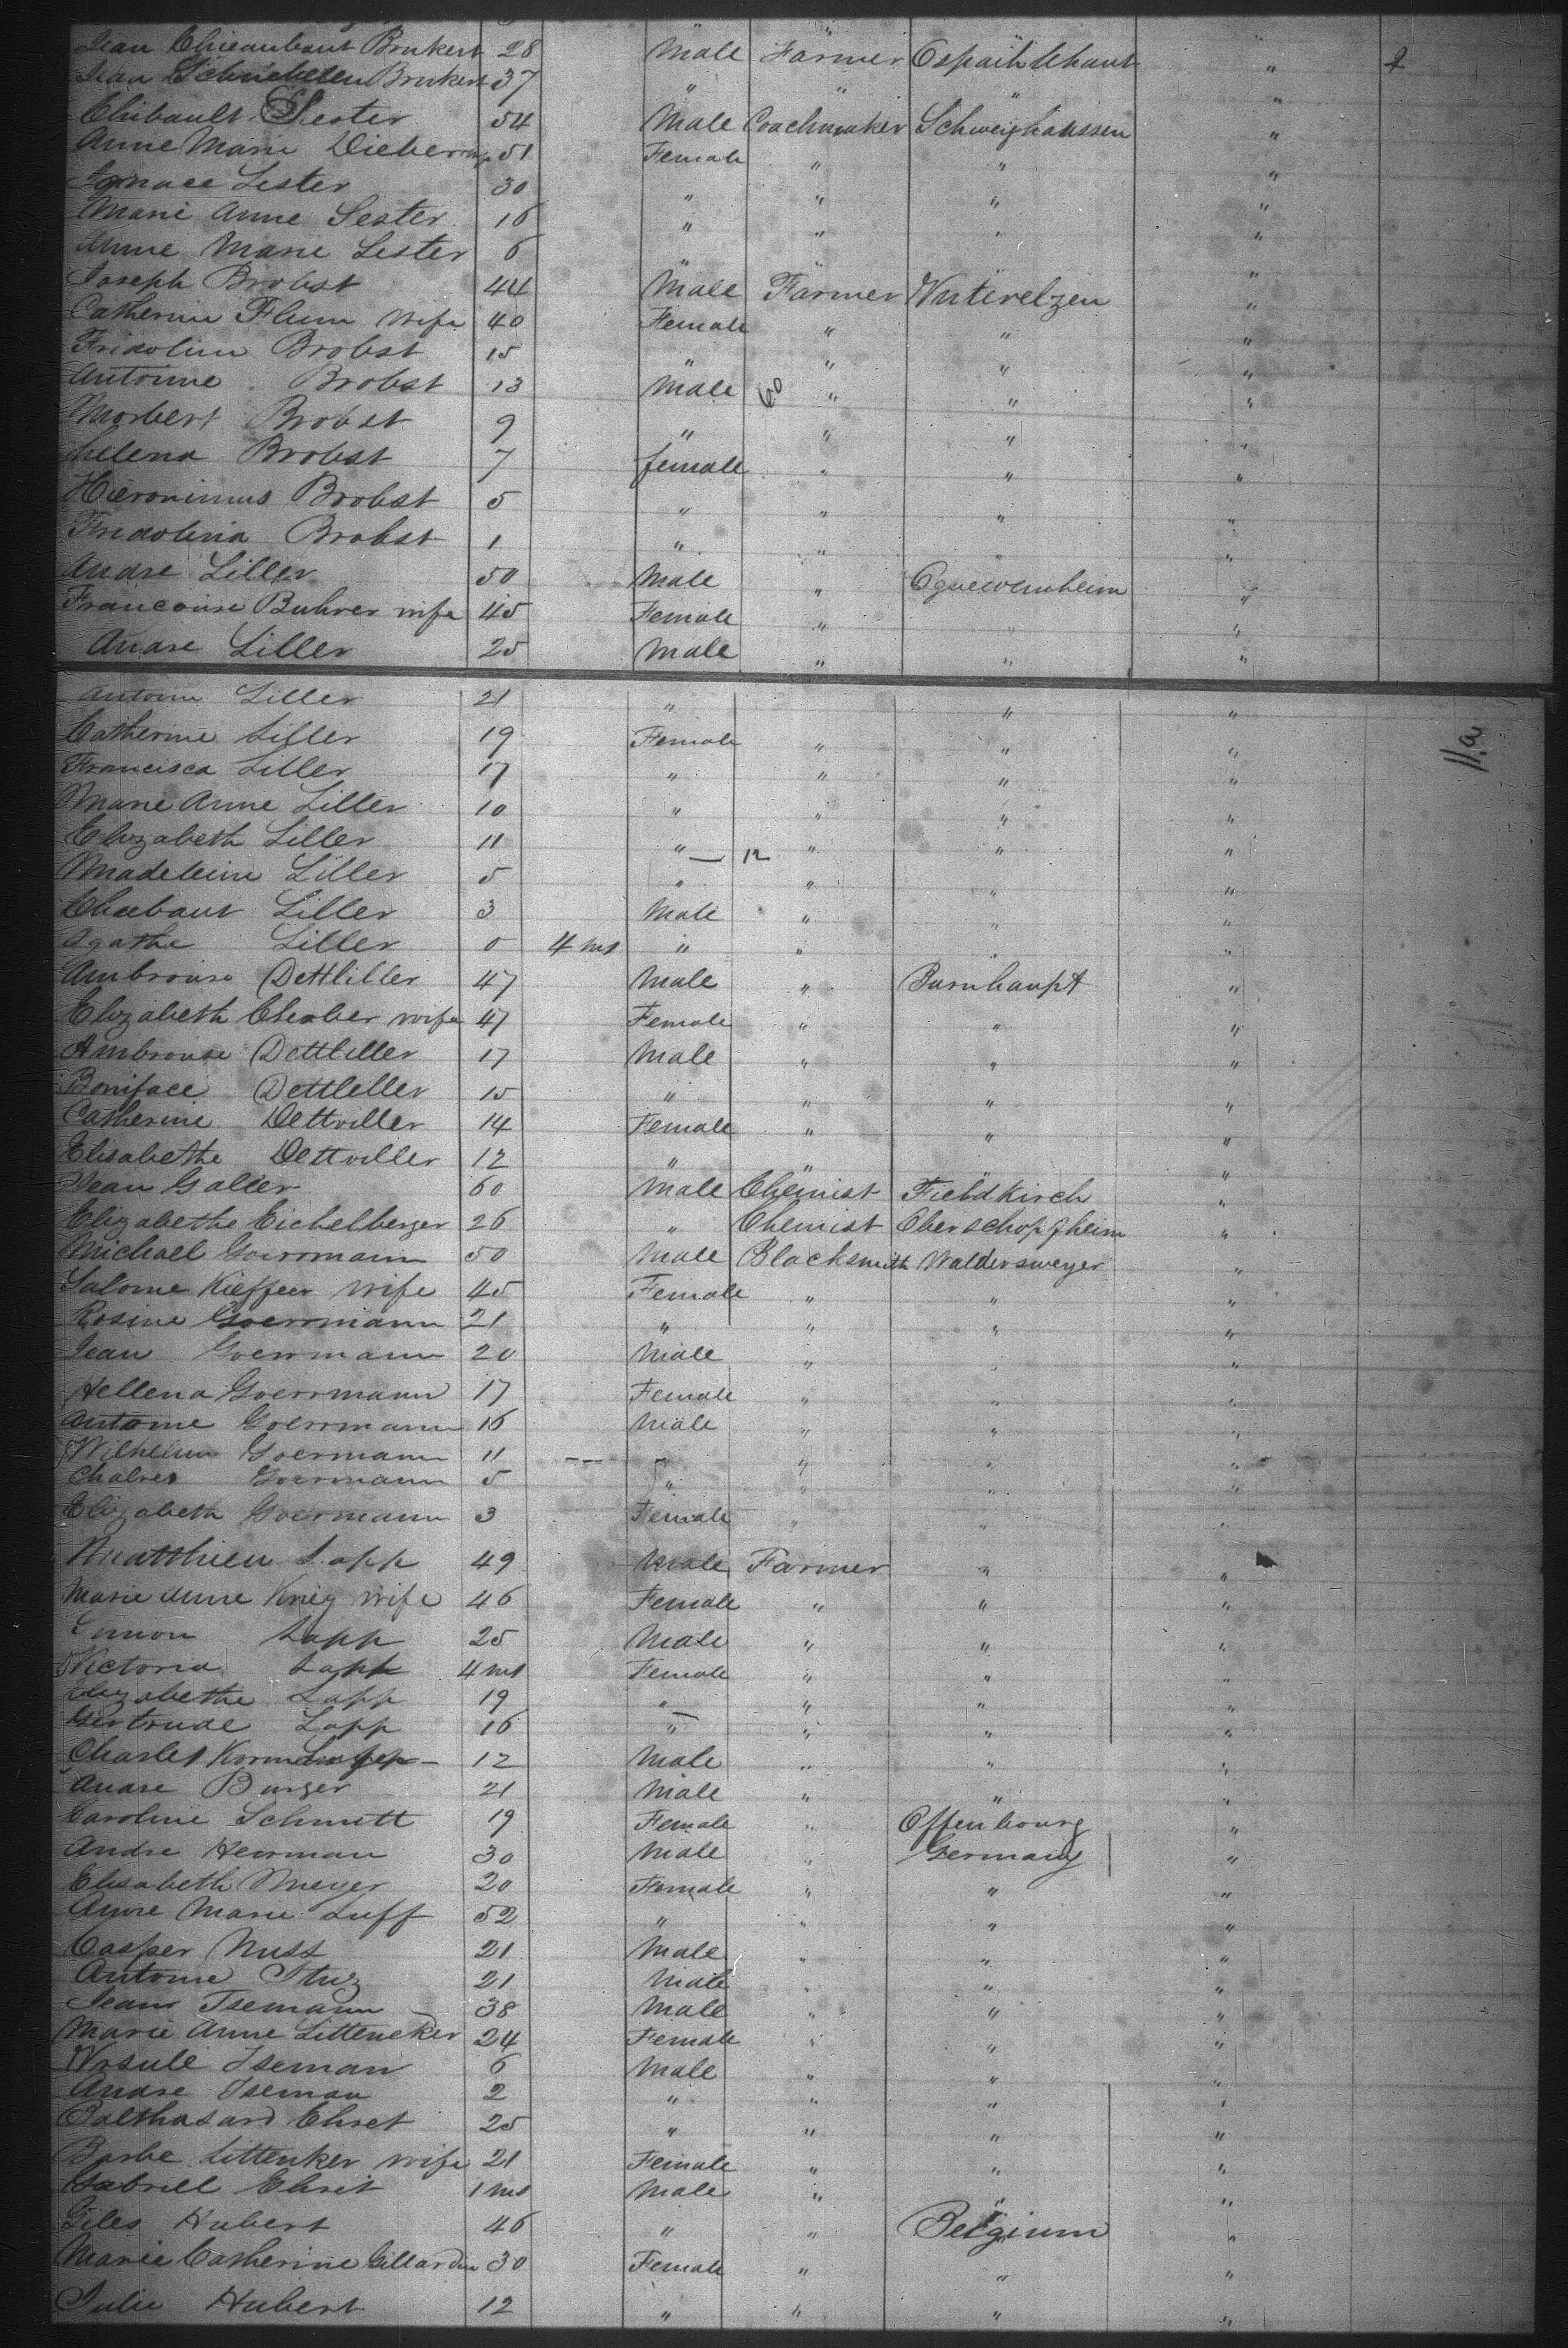 Jean Thieaubaut Brukert 28 Male Farmer Cspaih lehaut " 2
Jean Brukert 37 " " " "
Thibault Sester 54 Male Coachmaker Schweighaussen "
Anne Marie Dieber wife 51 Female " " "
Ignace Sester 30 " " " "
Marie Anne Sester 16 " " " "
Anne Marie Sester 6 " " " "
Joseph Brobst 44 Male Farmer Wuterelzen "
Catherine Flum wife 40 Female " " "
Fridolin Brobst 15 " " " "
Antoine Brobst 13 Male 60 " " "
Morbert Brobst 9 " " " "
Helena Brobst 7 female " " "
Hieronimus Brobst 5 " " " "
Fridolina Brobst 1 " " " "
Andre Liller 50 Male " "
Francoise Buhrer wife 45 Female " " "
Andre Liller 25 Male " " "
Antoine Liller 21 " " "
Catherine Liller 19 Female " " " 11.a
Francisca Liller 17 " " " "
Marie Anne Liller 10 " " " "
Elizabeth Liller 11 " — 12 " " "
Madeleine Liller 5 " " " "
Thiebaut Liller 3 Male " " "
Agathe Liller 0 4 ms " " " "
Ambroise Dettliller 47 Male " Burnhaupt "
Elizabeth Cherber wife 47 Female " " "
Ambroise Dettliller 17 Male " " "
Boniface Dettleller 15 " " " "
Catherine Dettviller 14 Female " " "
Elisabethe Dettviller 12 " " " "
Jean Galier 60 Male Chemist Fieldkirch "
Elizabethe Eichelberger 26 " Chemist Oberschopfheim "
Michael Goerrmann 50 Male Blacksmith Waldersweyer "
Salome Kieffeer wife 45 Female " " "
Rosine Goerrmann 21 " " " "
Jean Goerrmann 20 Male " " "
Hellena Goerrmann 17 Female " " "
Antoine Goerrmann 16 Male " " "
Wilhelm Goermann 11 --- " " " "
Chalres Goermann 5 " " " "
Elizabeth Goermann 3 Female " " "
Matthieu Lapp 49 Male Farmer " "
Marie Anne Krieg wife 46 Female " " "
Simon Lapp 25 Male " " "
Victoria Lapp 4 ms Female " " "
Elizabethe Lapp 19 " — " " "
Gertrude Lapp 16 " " " "
Charles 12 Male " " "
Andre Burger 21 Male " " "
Caroline Schmitt 19 Female " Offenbourg "
Andre Herrman 30 Male " Germany "
Elisabeth Meyer 20 Female " " "
Anne Marie Luff 52 " " " "
Casper Nuss 21 Male " " "
Antoine Stuz 21 Male " " "
Jean Isemann 38 Male " " "
Marie Anne Litteneker 24 Female " " "
Ursule Iseman 6 Male " " "
Andre Iseman 2 " " " "
Balthasard Ehret 25 " " " "
Barbe Littenker wife 21 Female " " "
Gabriel Ehret 1 ms Male " " "
Giles Hubert 46 " " Belgium "
Marie Catherine Gillardin 30 Female " " "
Julie Hubert 12 " " " "